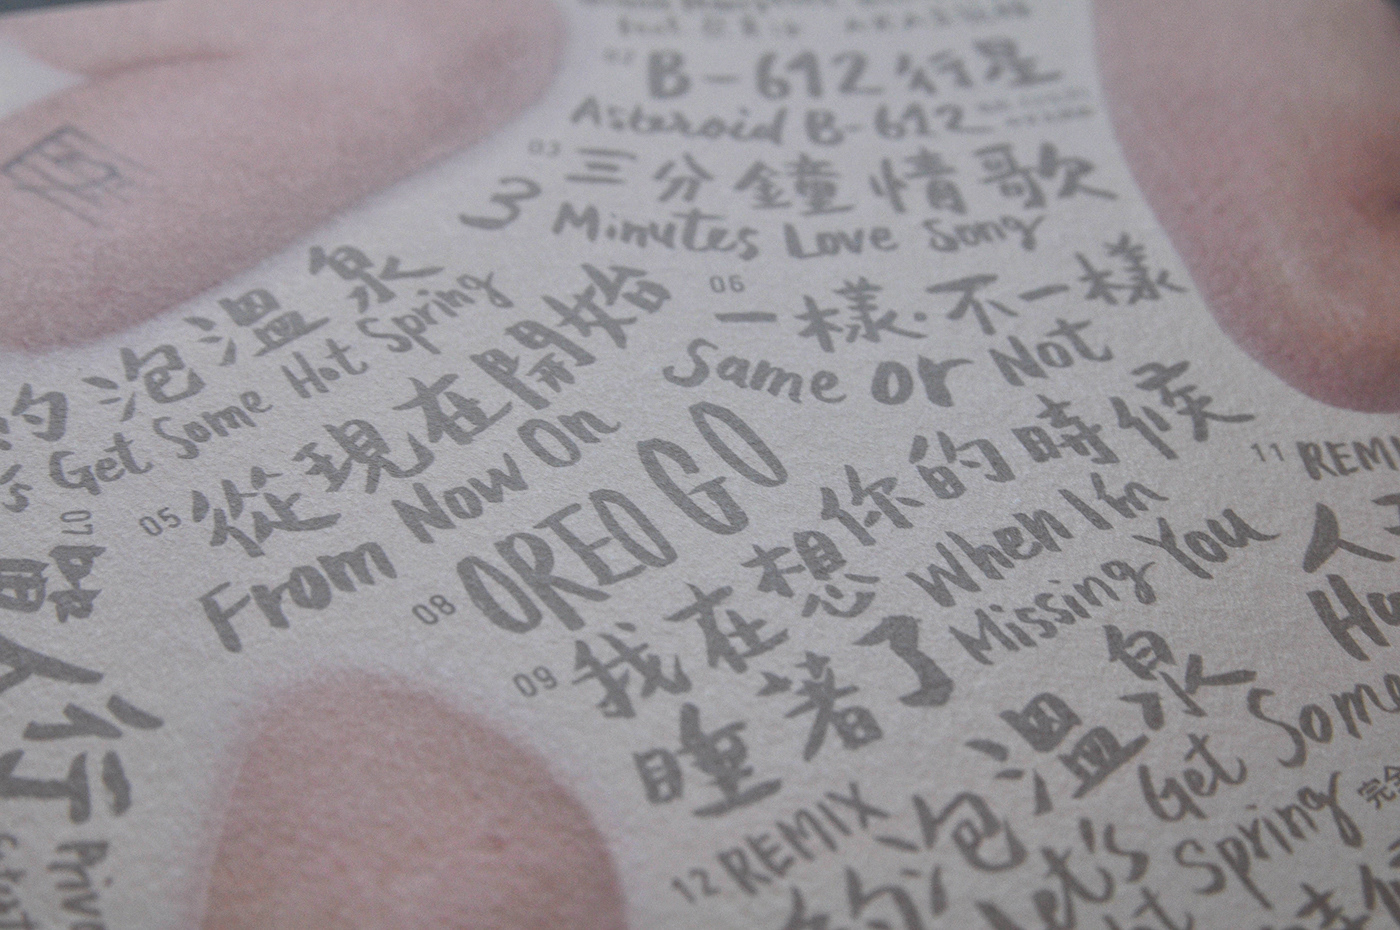 02 B-612行星
Asteroid B-612
03 三分鐘情歌
3 Minutes Love Song
約泡溫泉
's Get Some Hot Spring
05 從現在開始
From Now On
06 一樣·不一樣
Same or Not
07
行
08 OREO GO
09 我在想你的時候
睡著了
When I'm
Missing You
11 REMI
人
12 REMIX
約泡溫泉
Let's Get Some
Spring
完全